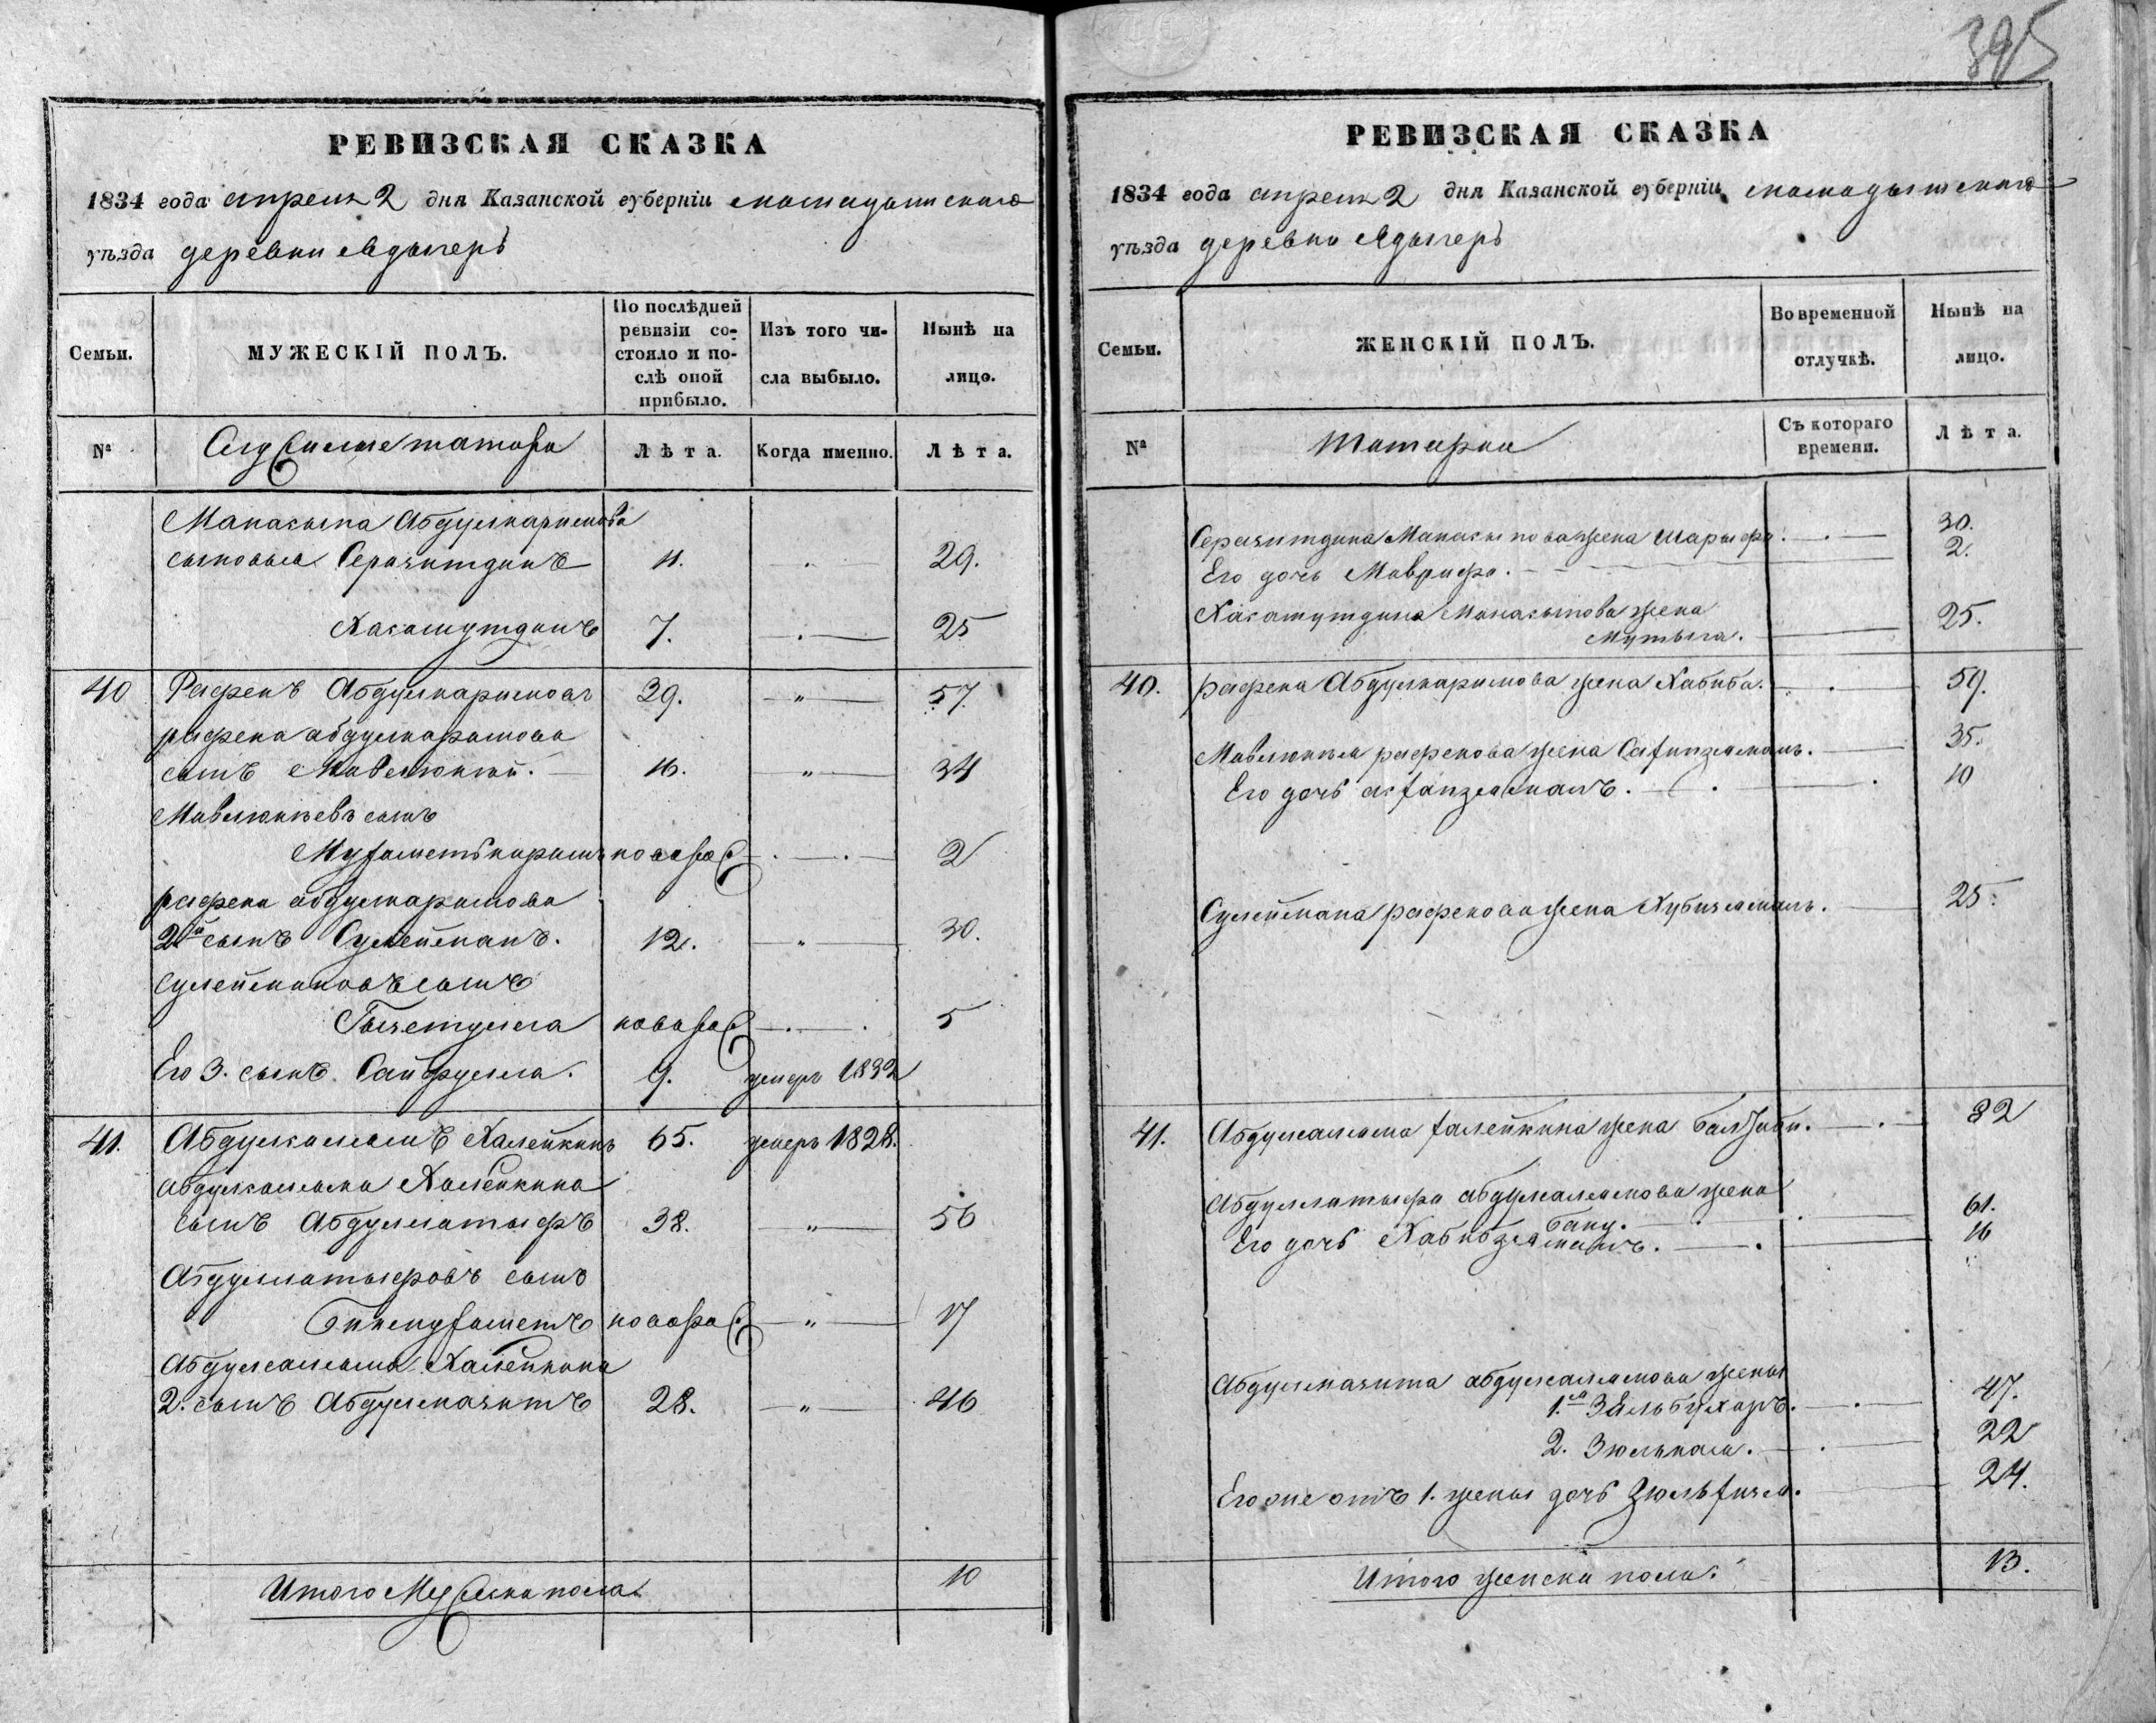 395
РЕВИЗСКАЯ СКАЗКА
1834 года апреля 2 дня Казанской губерніи мамадышскаго
уѣзда деревни Адыгеръ
Семьи.
МУЖЕСКІЙ ПОЛЪ.
По послѣдней ревизіи состояло и послѣ оной прибыло.
Изъ того числа выбыло.
Нынѣ на лицо.
№
татара
Лѣта.
Когда именно.
Лѣта.
Манасыпа Абдулкаримова
сыновья Серазитдинъ 11. 29.
Хасамутдинъ 7. 25
40 Рафекъ Абдулкаримовъ 39. " 57.
рафека абдулкаримова
сынъ Мавлюкей. 16. " 34
Мавлюкѣевъ сынъ
Мухаметькаримъ новорож 2
рафека абдулкаримова
2й сынъ Сулейманъ. 12. " 30.
сулеймановъ сынъ
Гызетулла новорож 5
Его 3. сынъ Сайфулла. 9. умеръ 1832
41. Абдулсалямъ Халейкинъ 65. умеръ 1828.
абдулсаляма Халейкина
сынъ Абдуллатыфъ 38. " 56
Абдуллатыфовъ сынъ
Бикмухаметъ новорож " 17
Абдулсаляма Халейкина
2. сынъ Абдулмазитъ 28. " 46
Итого Мужеска пола 10
РЕВИЗСКАЯ СКАЗКА
1834 года апреля 2 дня Казанской губерніи мамадышскаго
уѣзда деревни Адыгеръ
Семьи.
ЖЕНСКІЙ ПОЛЪ.
Во временной отлучкѣ.
Нынѣ на лицо.
№
татарки
Съ котораго времени.
Лѣта.
Серазитдина Манасыпова жена Шарыфа. 30.
Его дочь Маврифа. 2.
Хасамутдина Манасыпова жена 25.
Мутыга.
40. рафека Абдулкаримова жена Хабиба. 59.
Мавлюкѣя рафекова жена Сахипзямалъ. 35.
Его дочь асхапзямалъ. 10
Сулеймана рафекова жена Хубизямалъ. 25.
41. Абдулсаляма халейкина жена 82
Абдуллатыфа абдулсалямова жена
бану. 61.
Его дочь Хабибзямалъ. 16
Абдулмазита абдулсалямова жены
1.я Зюльбухаръ. 47.
2. Зюлькамя. 22
Его же отъ 1. жены дочь Зюльхизя. 24.
Итого женска пола. 13.